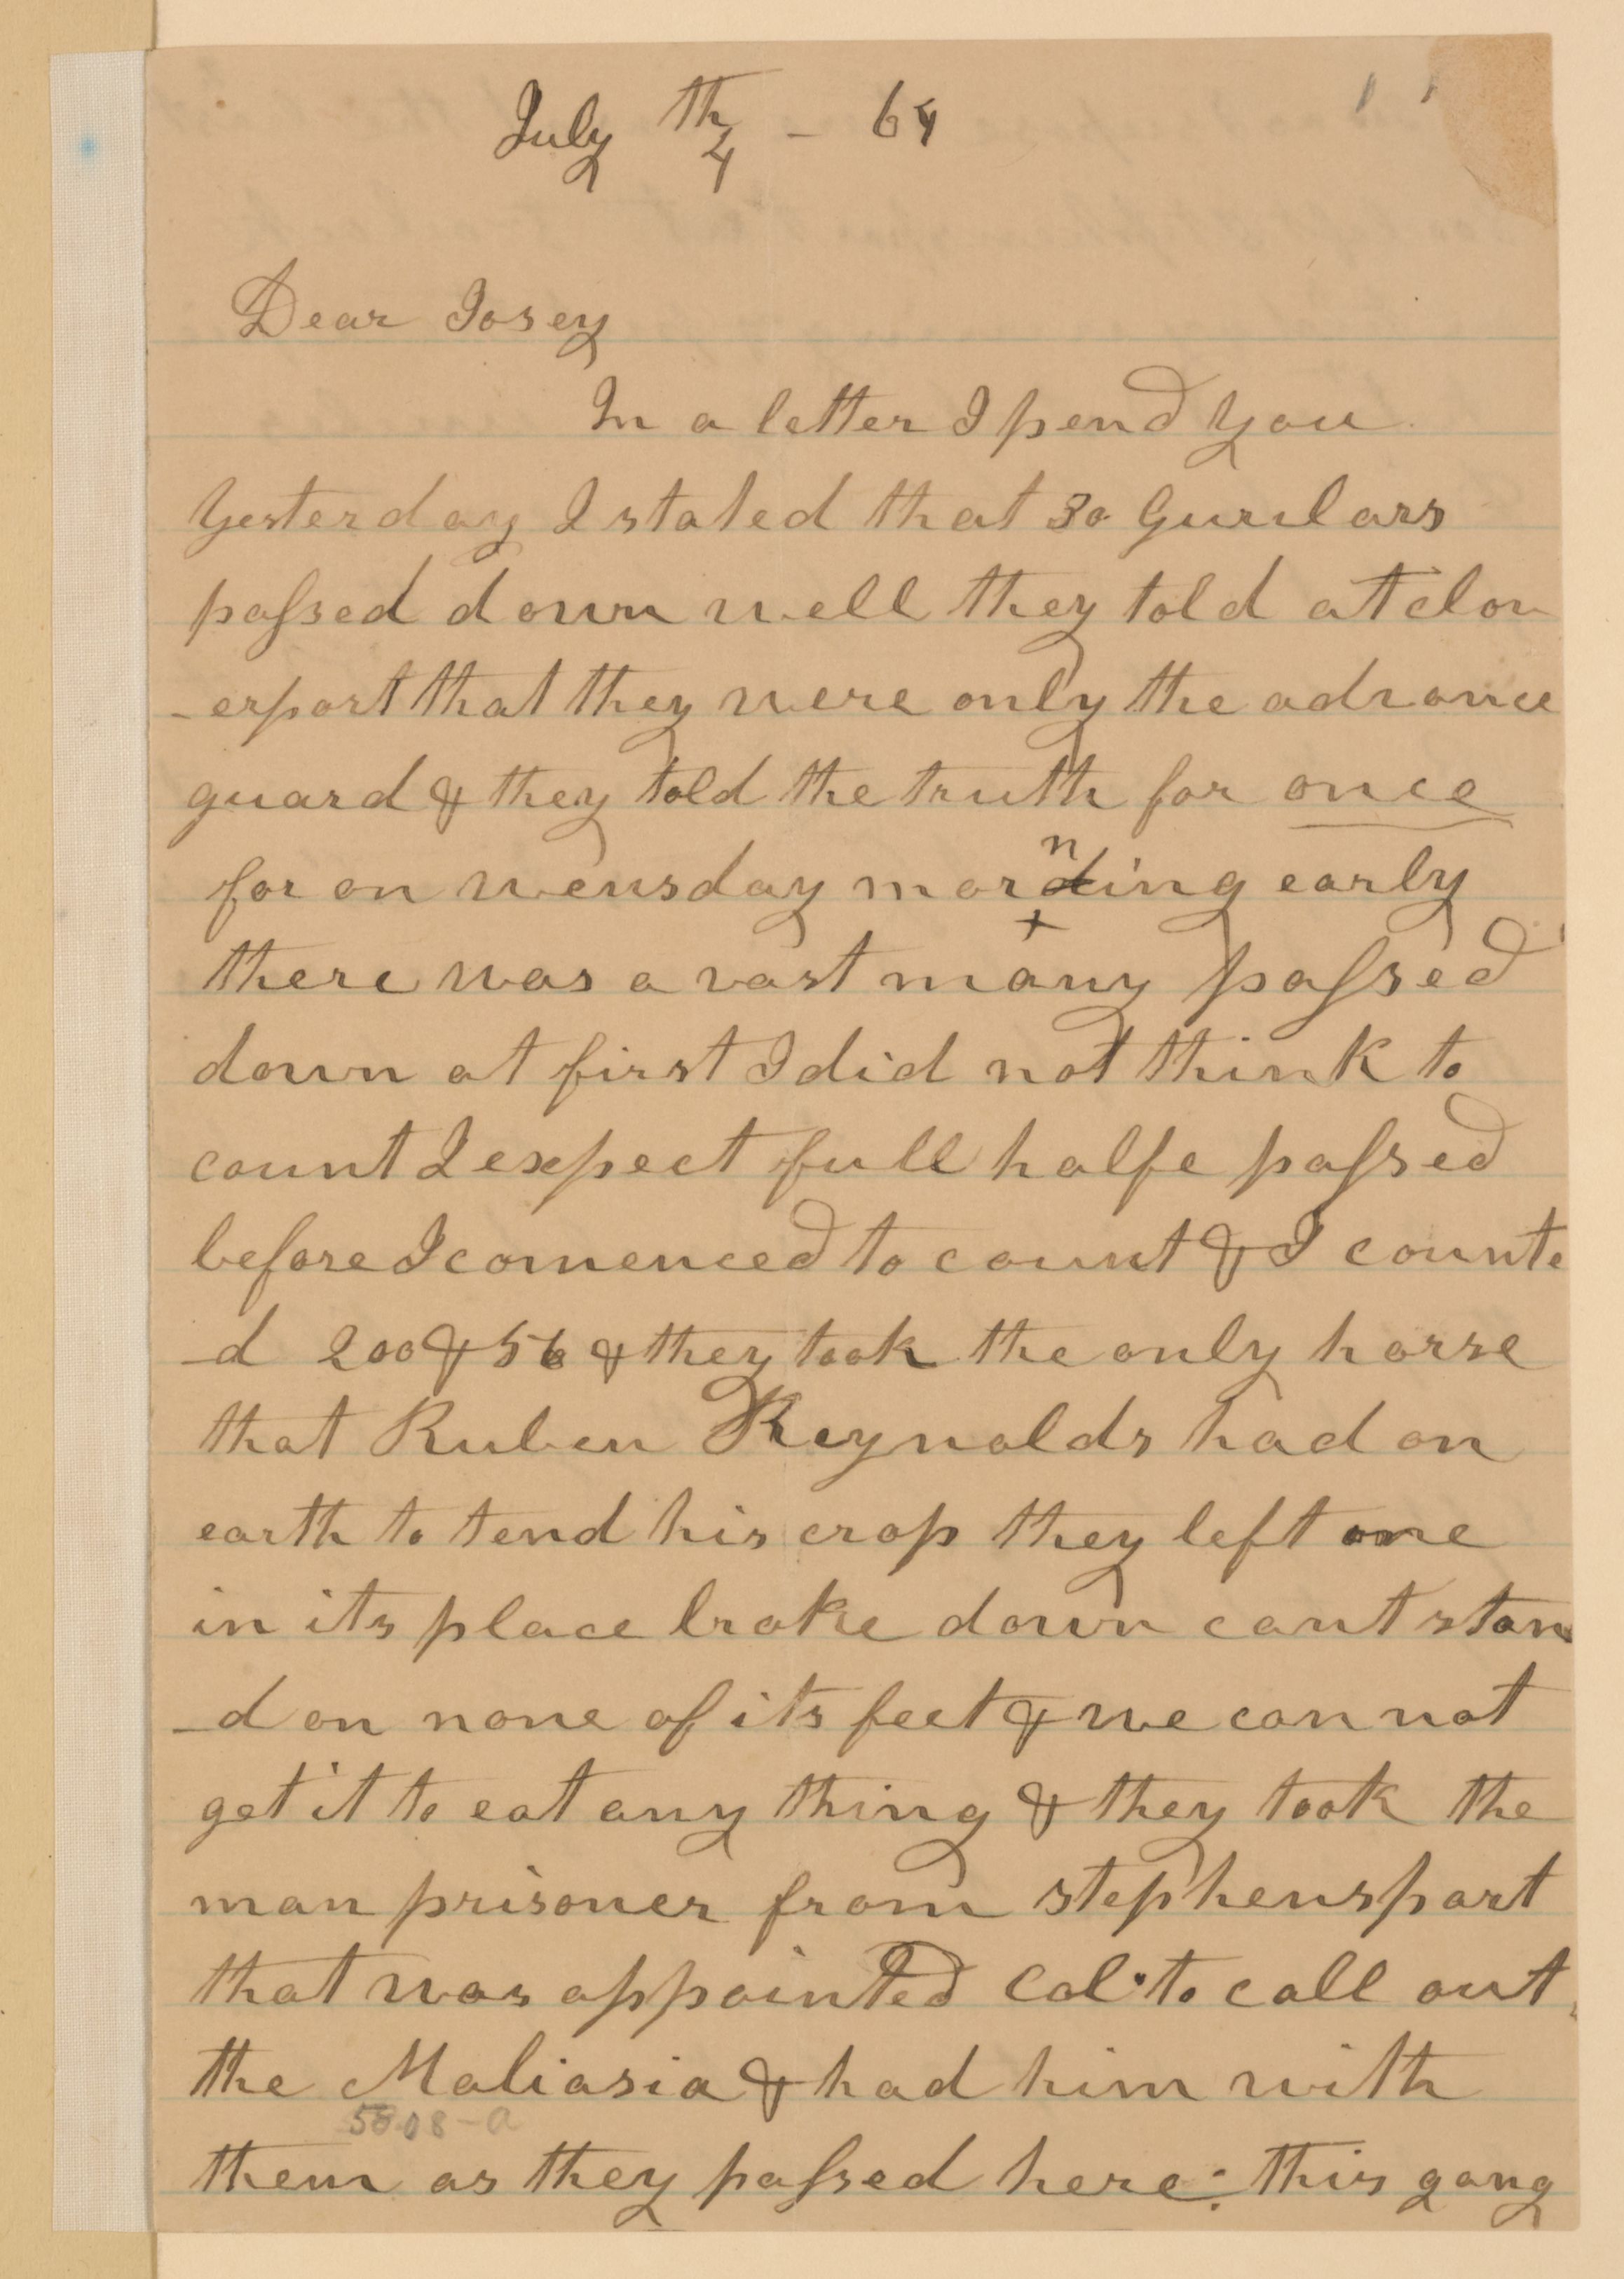 July 4th - 64
Dear Josey
In a letter I pend you
yesterday I stated that 30 Gurilars
passed down well they told at clov
-erport that they were only the advance
guard & they told the truth for once
for on wensday morning early
there was a vast many passed
down at first I did not think to
count I expect full halfe passed
before I comenced to count & I counte
-d 200 & 56 & they took the only horse
that Ruben Reynolds had on
earth to tend his crop they left one
in its place broke down cant stan
-d on none of its feet & we can not
get it to eat any thing & they took the
man prisoner from stephensport
that was appointed Col. to call out
the Maliasia & had him with
5808-a
them as they passed here: this gang